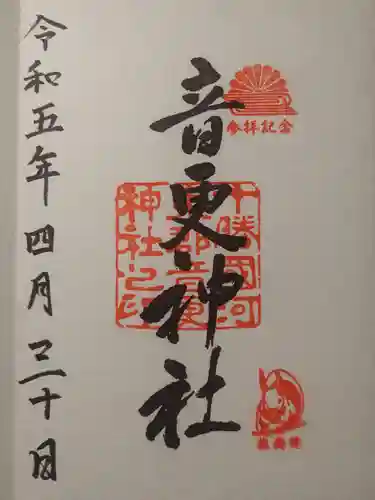 参拝記念
音更神社
十勝國河
東郡音更
神社之印
令和五年四月三十日